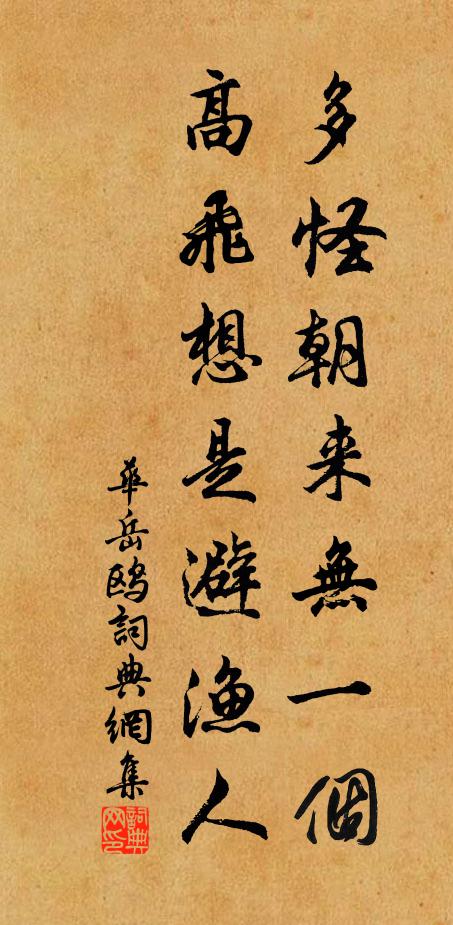 多怪朝来無一個
高飛想是避漁人
華岳鷗詞典網集
詞典網印